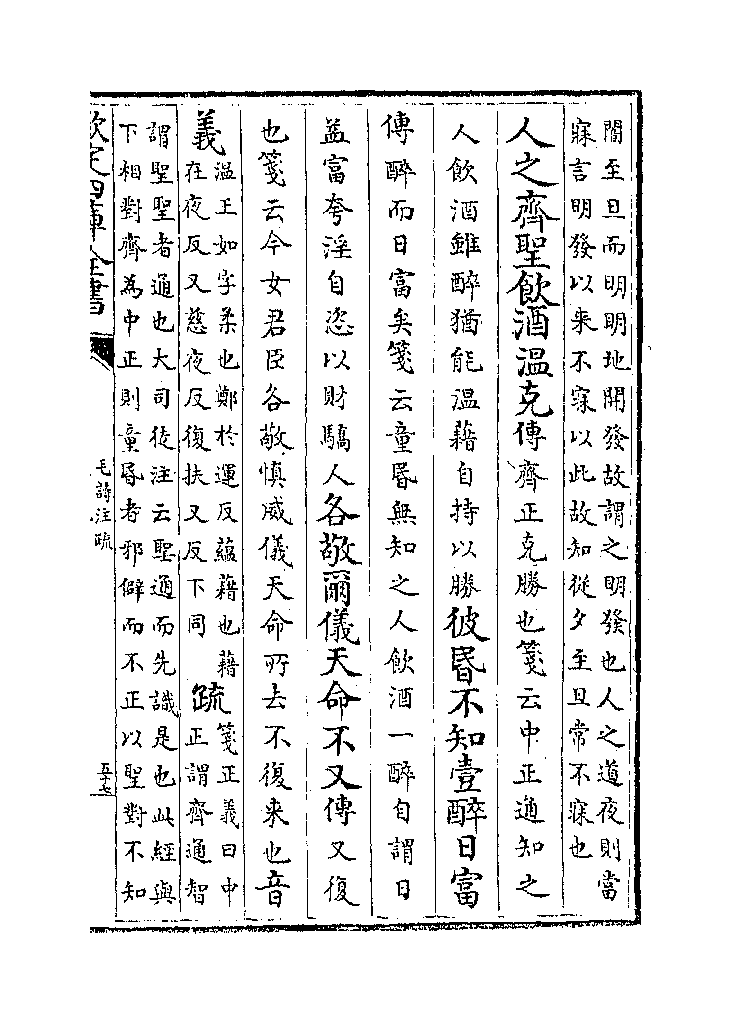 闇至旦而明明地開發故謂之明發也人之道夜則當
寐言明發以来不寐以此故知從夕至旦常不寐也
人之齊聖飲酒温克傳齊正克勝也箋云中正通知之
人飲酒雖醉猶能温藉自持以勝彼昬不知壹醉日富
傳醉而日富矣箋云童昬無知之人飲酒一醉自謂日
益富夸淫自恣以財驕人各敬爾儀天命不又傳又復
也箋云今女君臣各敬慎威儀天命所去不復来也音
義温王如字柔也鄭於運反蘊藉也藉
在夜反又慈夜反復扶又反下同
疏箋正義曰中
正謂齊通智
謂聖聖者通也大司徒注云聖通而先識是也此經與
下相對齊為中正則童昬者邪僻而不正以聖對不知
欽定四庫全書
毛詩注疏
五十七